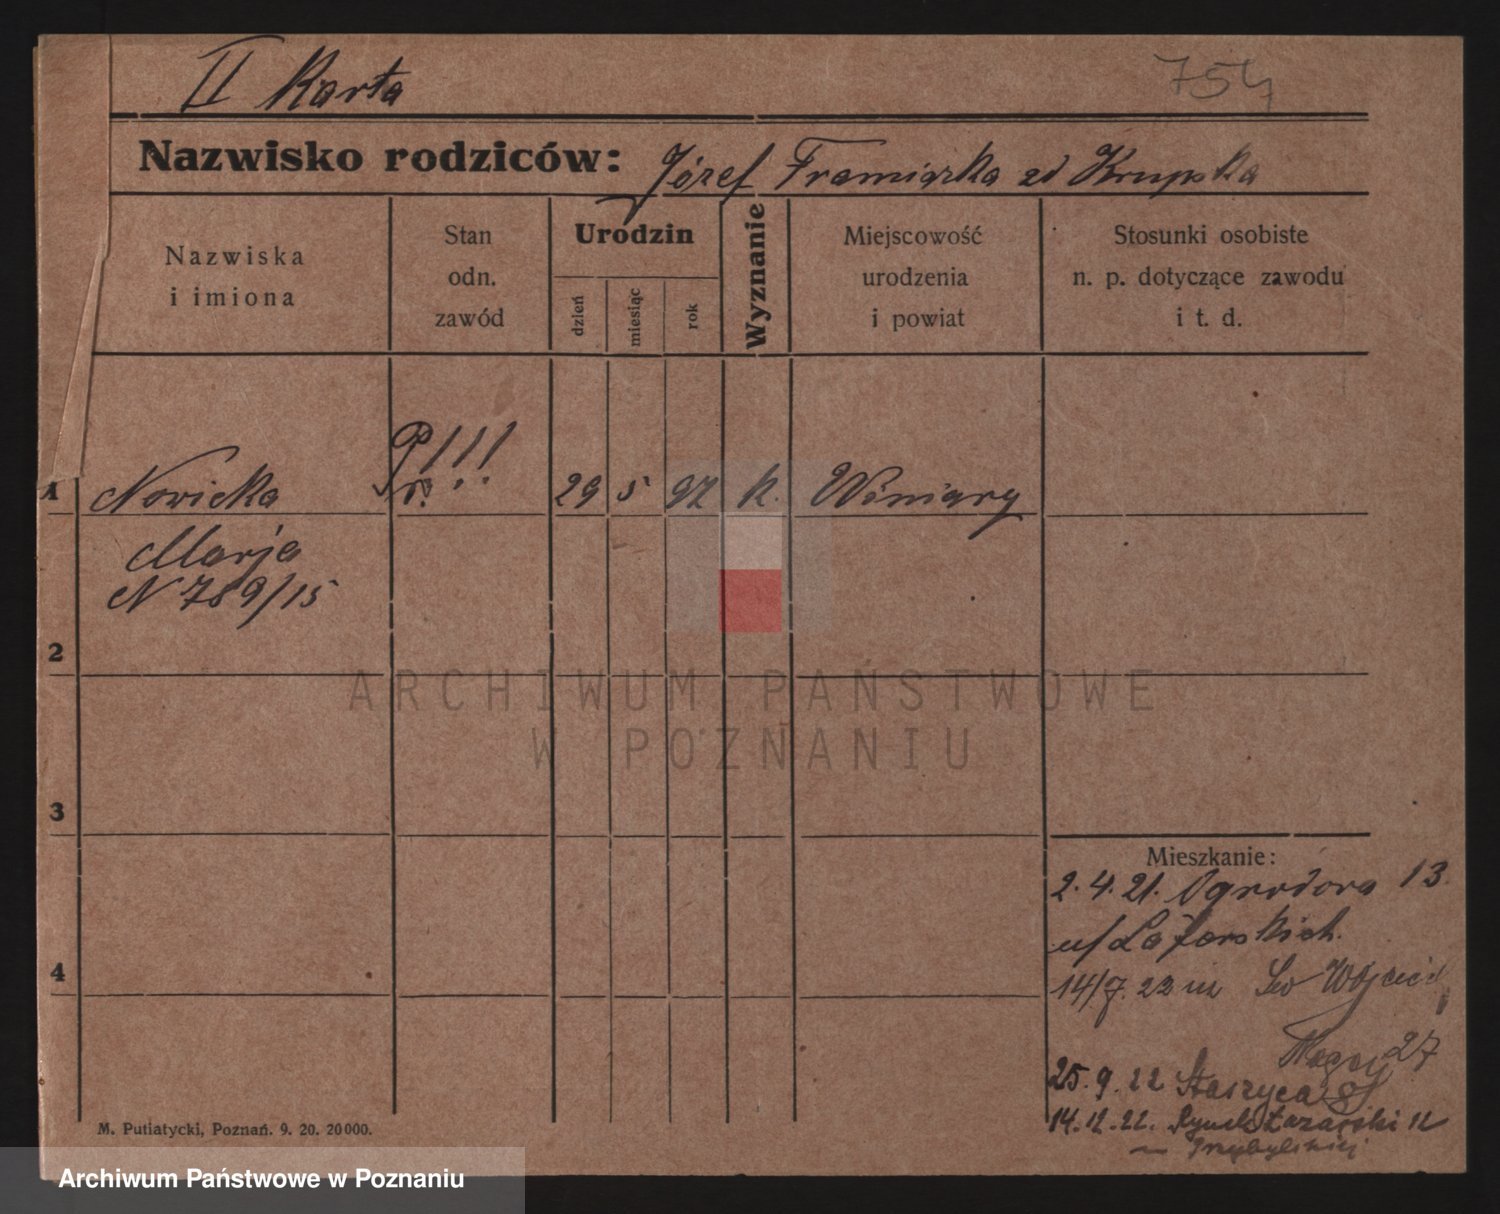 II Karta
754
Nazwisko rodziców: Józef Framiązka zd Krupska
Nazwiska
i imiona
Stan
odn.
zawód
Urodzin
dzień
miesiąc
rok
Wyznanie
Miejscowość
urodzenia
i powiat
Stosunki osobiste
n. p. dotyczące zawodu
i t. d.
P!!!
1 Nowicka 29 5 97 k. Winiary
Marja
N 789/15
2
3
4
ARCHIWUM PAŃSTWOWE
W POZNANIU
Mieszkanie:
2.4.21. Ogrodowa 13.
u/ Lazarskich.
14/7.22 Św Wojciech
27
25.9.22 Staszyca
14.12.22. Rynek Łazarski 12
Przybylskiej
M. Putiatycki, Poznań. 9. 20. 20000.
Archiwum Państwowe w Poznaniu